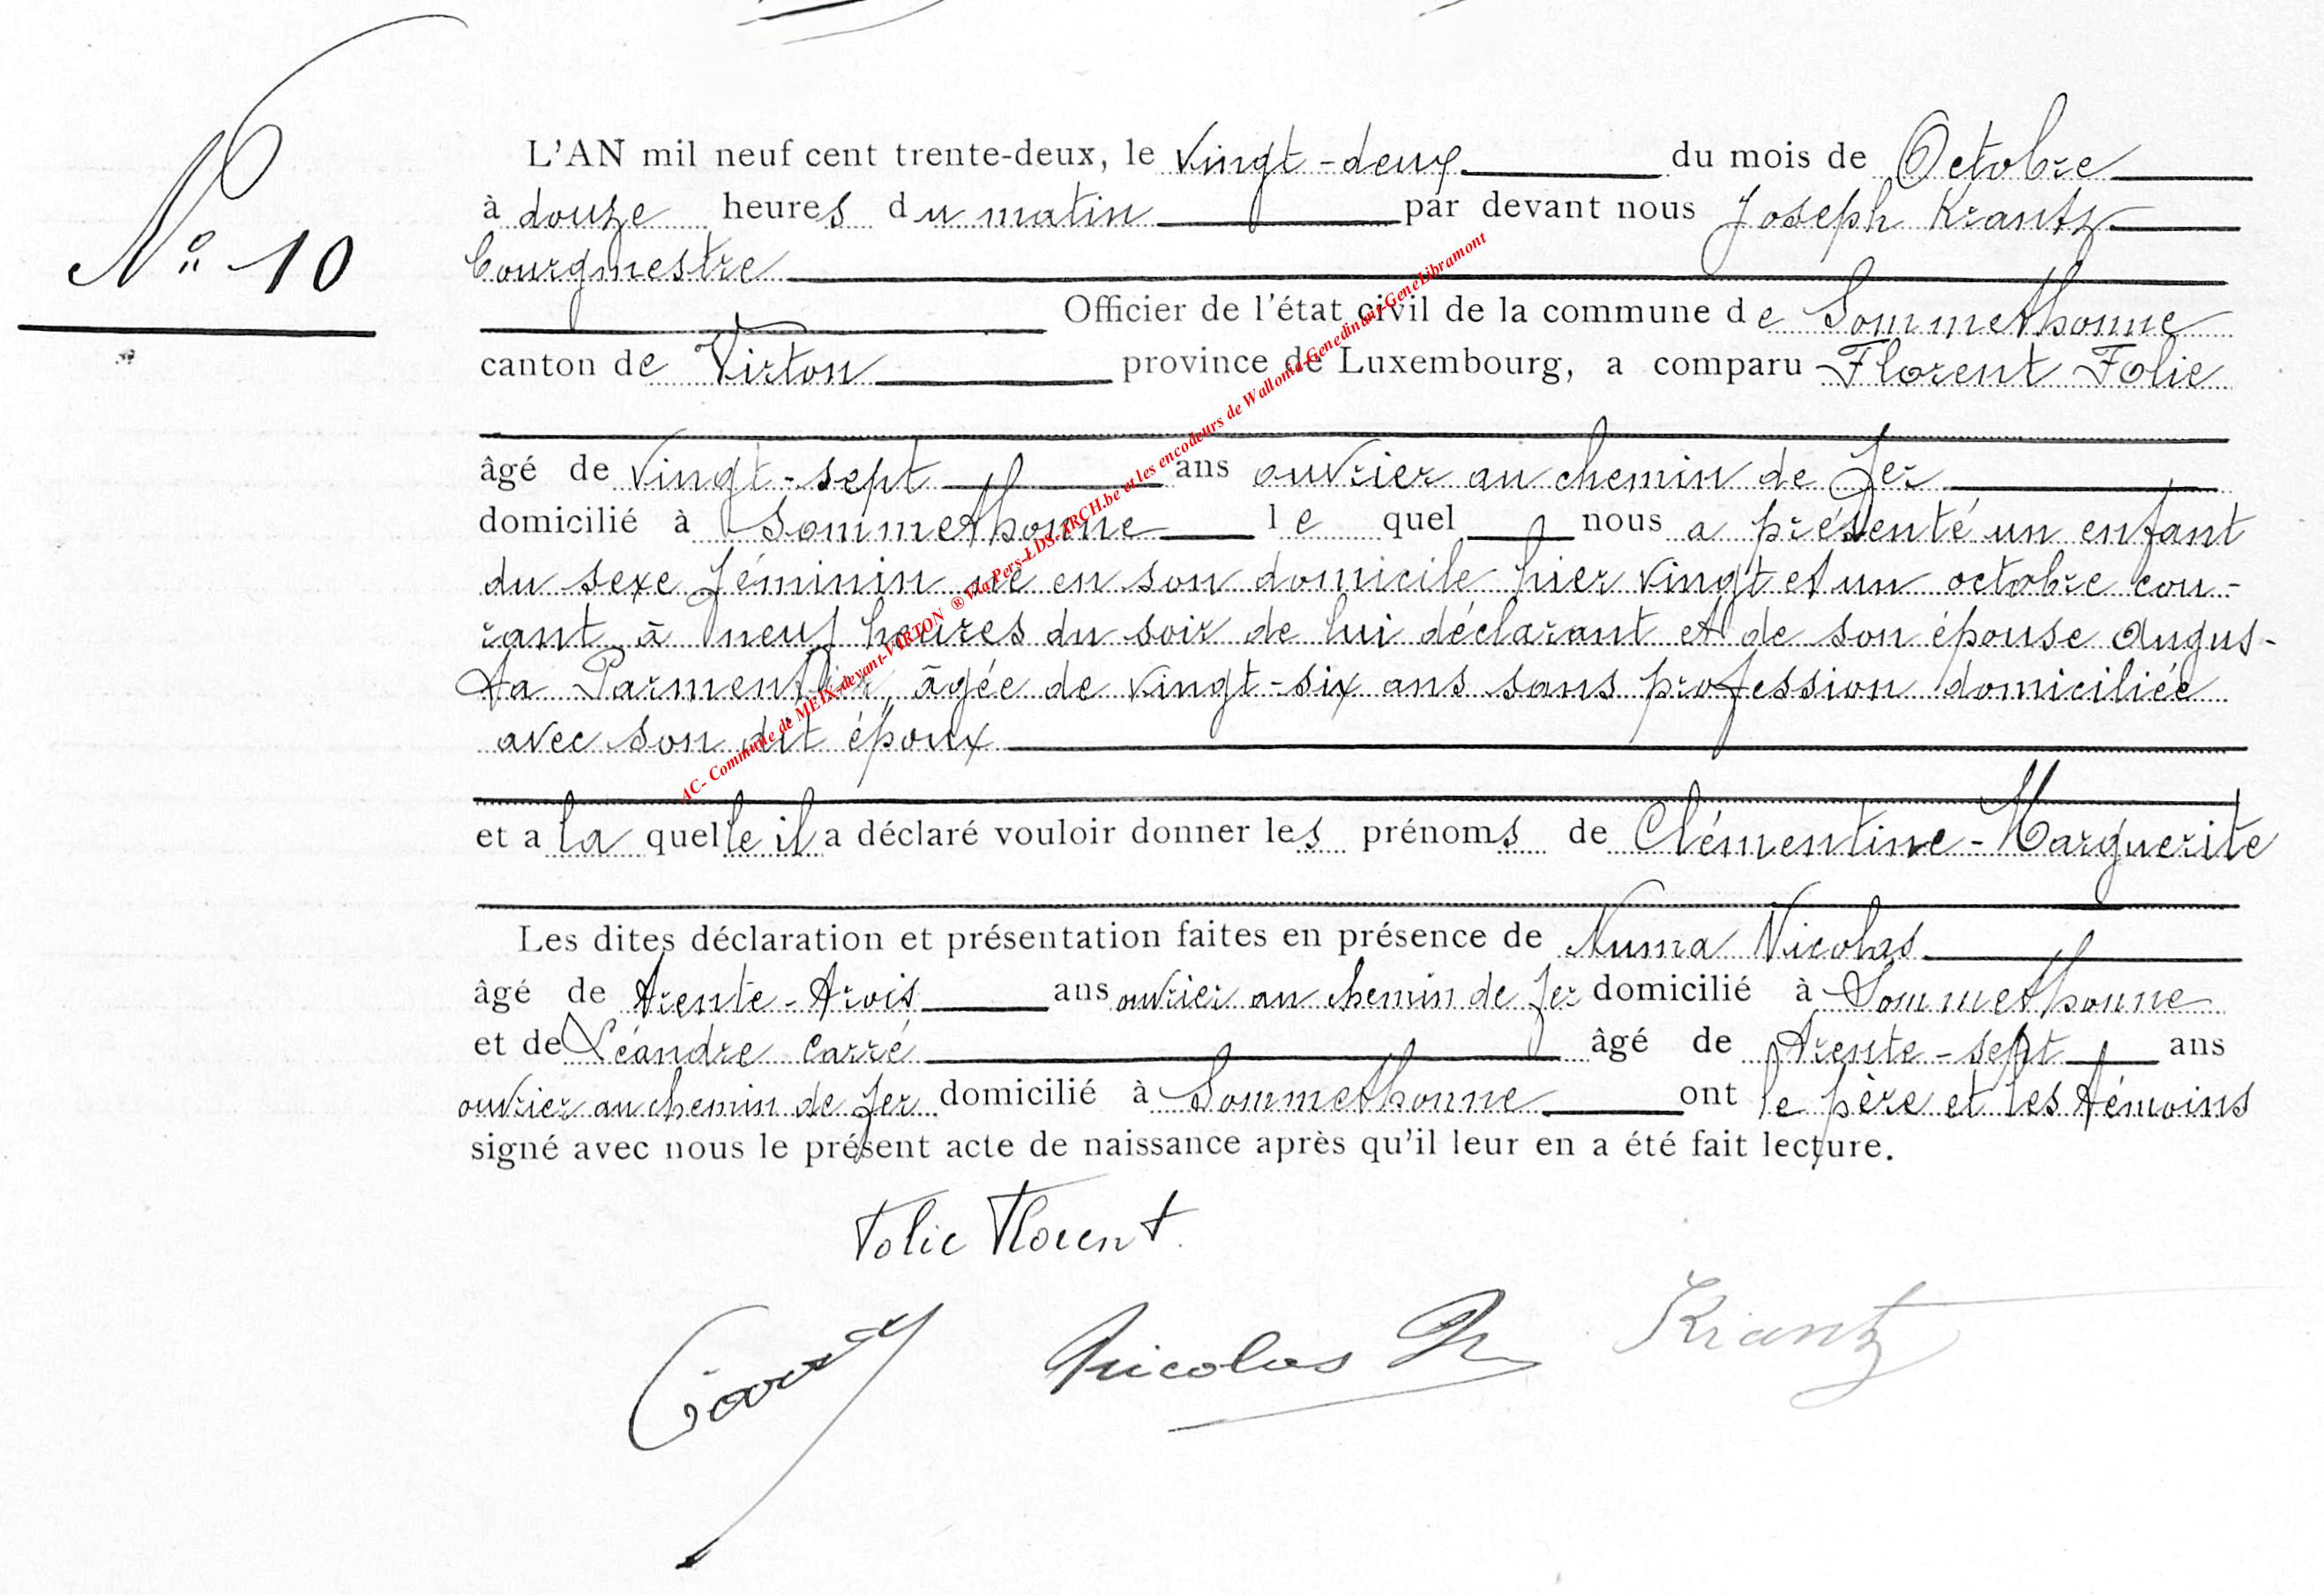 N° 10
L'AN mil neuf cent trente-deux, le vingt-deux du mois de Octobre
à douze heures du matin par devant nous Joseph Krantz
bourgmestre
Officier de l'état civil de la commune de Sommethonne
canton de Virton province de Luxembourg, a comparu Florent Folie
âgé de vingt-sept ans ouvrier au chemin de fer
domicilié à Sommethonne le quel nous a présenté un enfant
du sexe féminin né en son domicile hier vingt et un octobre cou-
rant à neuf heures du soir de lui déclarant et de son épouse Augus-
ta Parmentier, âgée de vingt-six ans sans profession domiciliée
avec son dit époux
et a la quelle il a déclaré vouloir donner les prénoms de Clémentine-Marguerite
Les dites déclaration et présentation faites en présence de Numa Nicolas
âgé de trente-trois ans ouvrier au chemin de fer domicilié à Sommethonne
et de Léandre Carré âgé de trente-sept ans
ouvrier au chemin de fer domicilié à Sommethonne ont le père et les témoins
signé avec nous le présent acte de naissance après qu'il leur en a été fait lecture.
Folie Florent.
Carré Nicolas N Krantz
AC- Commune de MEIX-devant-VIRTON ® Via Pers-LDS-ARCH.be et les encodeurs de Wallonia-Genedinant-GeneLibramont